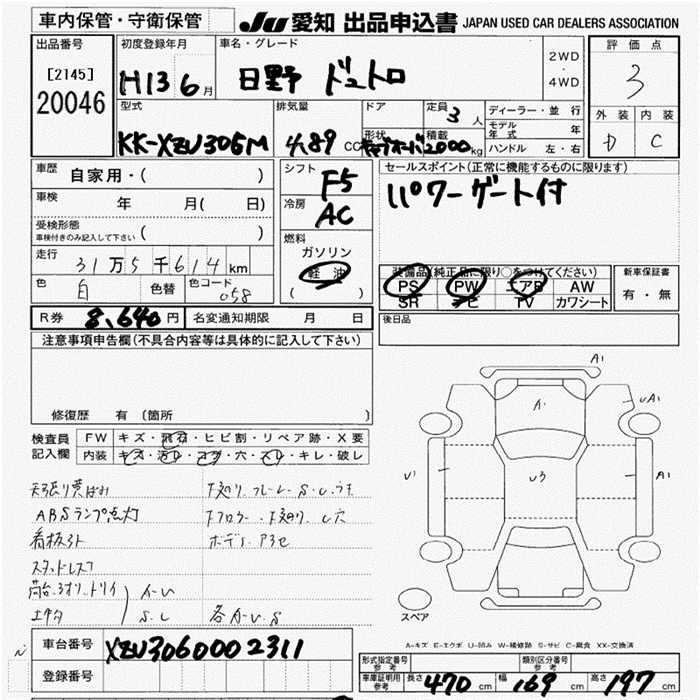 車内保管・守衛保管
JU 愛知 出品申込書 JAPAN USED CAR DEALERS ASSOCIATION
出品番号
[2145]
20046
初度登録年月
H13 6月
車名・グレード
日野 デュトロ
2WD
・
4WD
評価点
3
外装 内装
D C
型式
KK-XZU306M
排気量
4.89 CC
ドア
形状
定員 3人
積載 2000kg
ディーラー・並行
モデル年式 年
ハンドル 左・右
車歴 自家用・( )
車検 年 月( 日)
受検形態
車検付きのみ記入して下さい ( )
走行 31万5千614km
色 白 色替 色コード 058
シフト F5
冷房 AC
燃料
ガソリン
軽油
( )
セールスポイント(正常に機能するものに限ります)
パワーゲート付
装備品(純正品に限り○をつけてください)
PS PW エアB AW
SR ナビ TV カワシート
新車保証書
有・無
R券 8,640円 名変通知期限 月 日
後日品
注意事項申告欄(不具合内容等は具体的に記入して下さい)
修復歴 有 〔箇所 〕
検査員記入欄
FW キズ・飛石・ヒビ割・リペア跡・X要
内装 キズ・汚レ・コゲ・穴・スレ・キレ・破レ
ABSランプ点灯
看板外
スタッドレス
A1
A1
uA1
U1
U3
A1
スペア
A-キズ E-エクボ U-凹み W-補修跡 S-サビ C-腐食 XX-交換済
車台番号 XZU3060002311
登録番号
形式指定番号 参考
類別区分番号 参考
車庫証明用 参考 長さ 470cm 幅 169cm 高さ 197cm